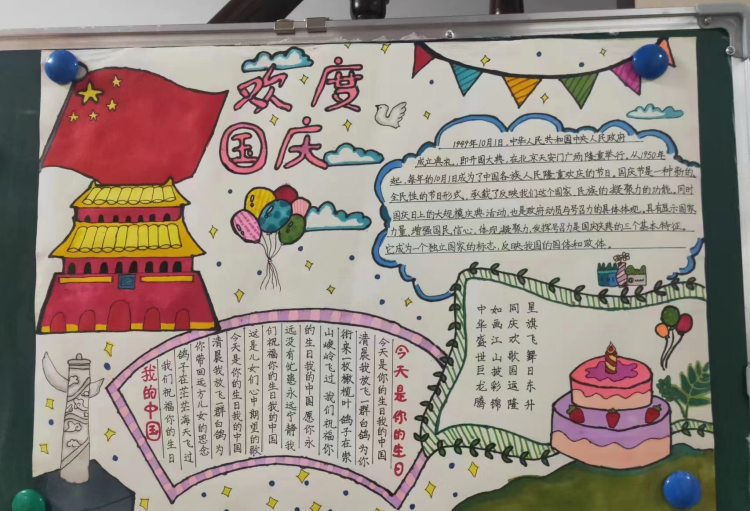 欢度
国庆
1949年10月1日,中华人民共和国中央人民政府
成立典礼,即开国大典,在北京天安门广场隆重举行,从1950年
起,每年的10月1日成为了中国各族人民隆重欢庆的节日。国庆节是一种新的
全民性的节日形式,承载了反映我们这个国家,民族的凝聚力的功能,同时
国庆日上的大规模庆典活动,也是政府动员与号召力的具体体现。具有显示国家
力量,增强国民信心,体现凝聚力,发挥号召力是国庆庆典的三个基本特征。
它成为一个独立国家的标志,反映我国的国体和政体。
星旗飞舞日东升
同庆欢歌国运隆
如画江山披彩锦
中华盛世巨龙腾
今天是你的生日
今天是你的生日我的中国
清晨我放飞一群白鸽为你
衔来一枚橄榄叶 鸽子在崇
山峻岭飞过 我们祝福你
的生日我的中国 愿你永
远没有忧患永远宁静 我
们祝福你的生日我的中国
这是儿女们心中期望的歌
今天是你的生日我的中国
清晨我放飞一群白鸽为
你带回远方儿女的思念
鸽子在茫茫海天飞过
我们祝福你的生日
我的中国